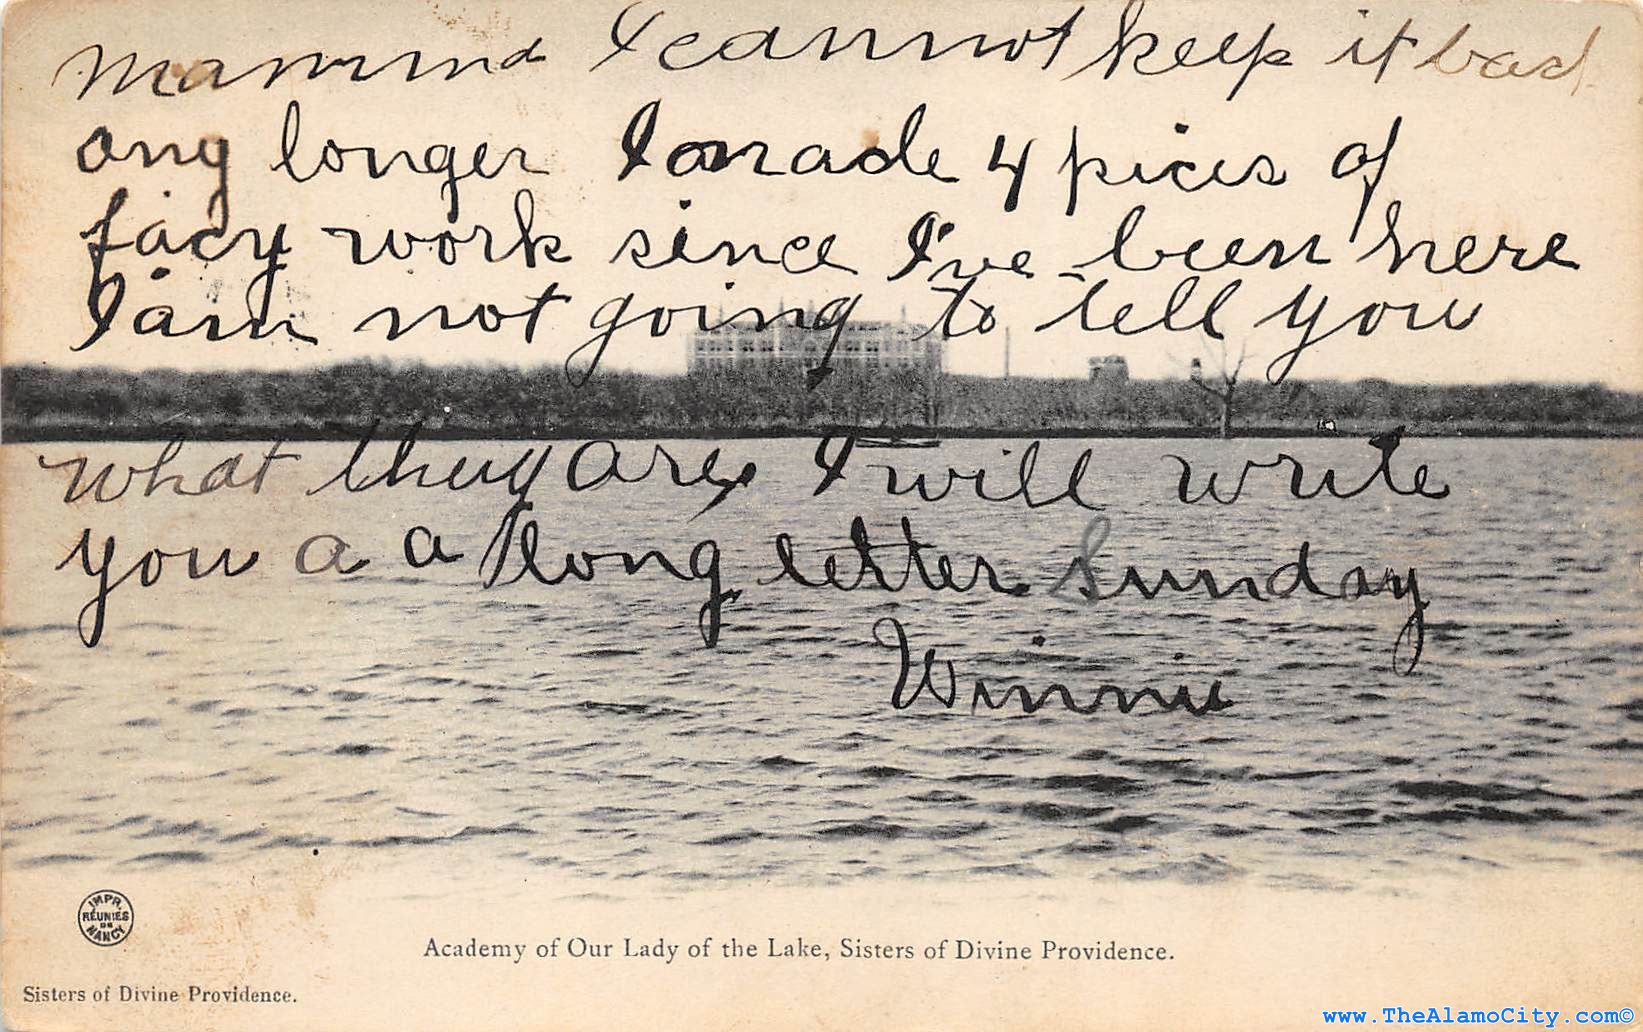 Mamma I cannot keep it back
any longer I made 4 pices of
facy work since I've been here
I am not going to tell you
what they are I will write
you a a long letter Sunday
Winnie
IMPR.
RÉUNIES
DE
NANCY
Academy of Our Lady of the Lake, Sisters of Divine Providence.
Sisters of Divine Providence.
www.TheAlamoCity.com©